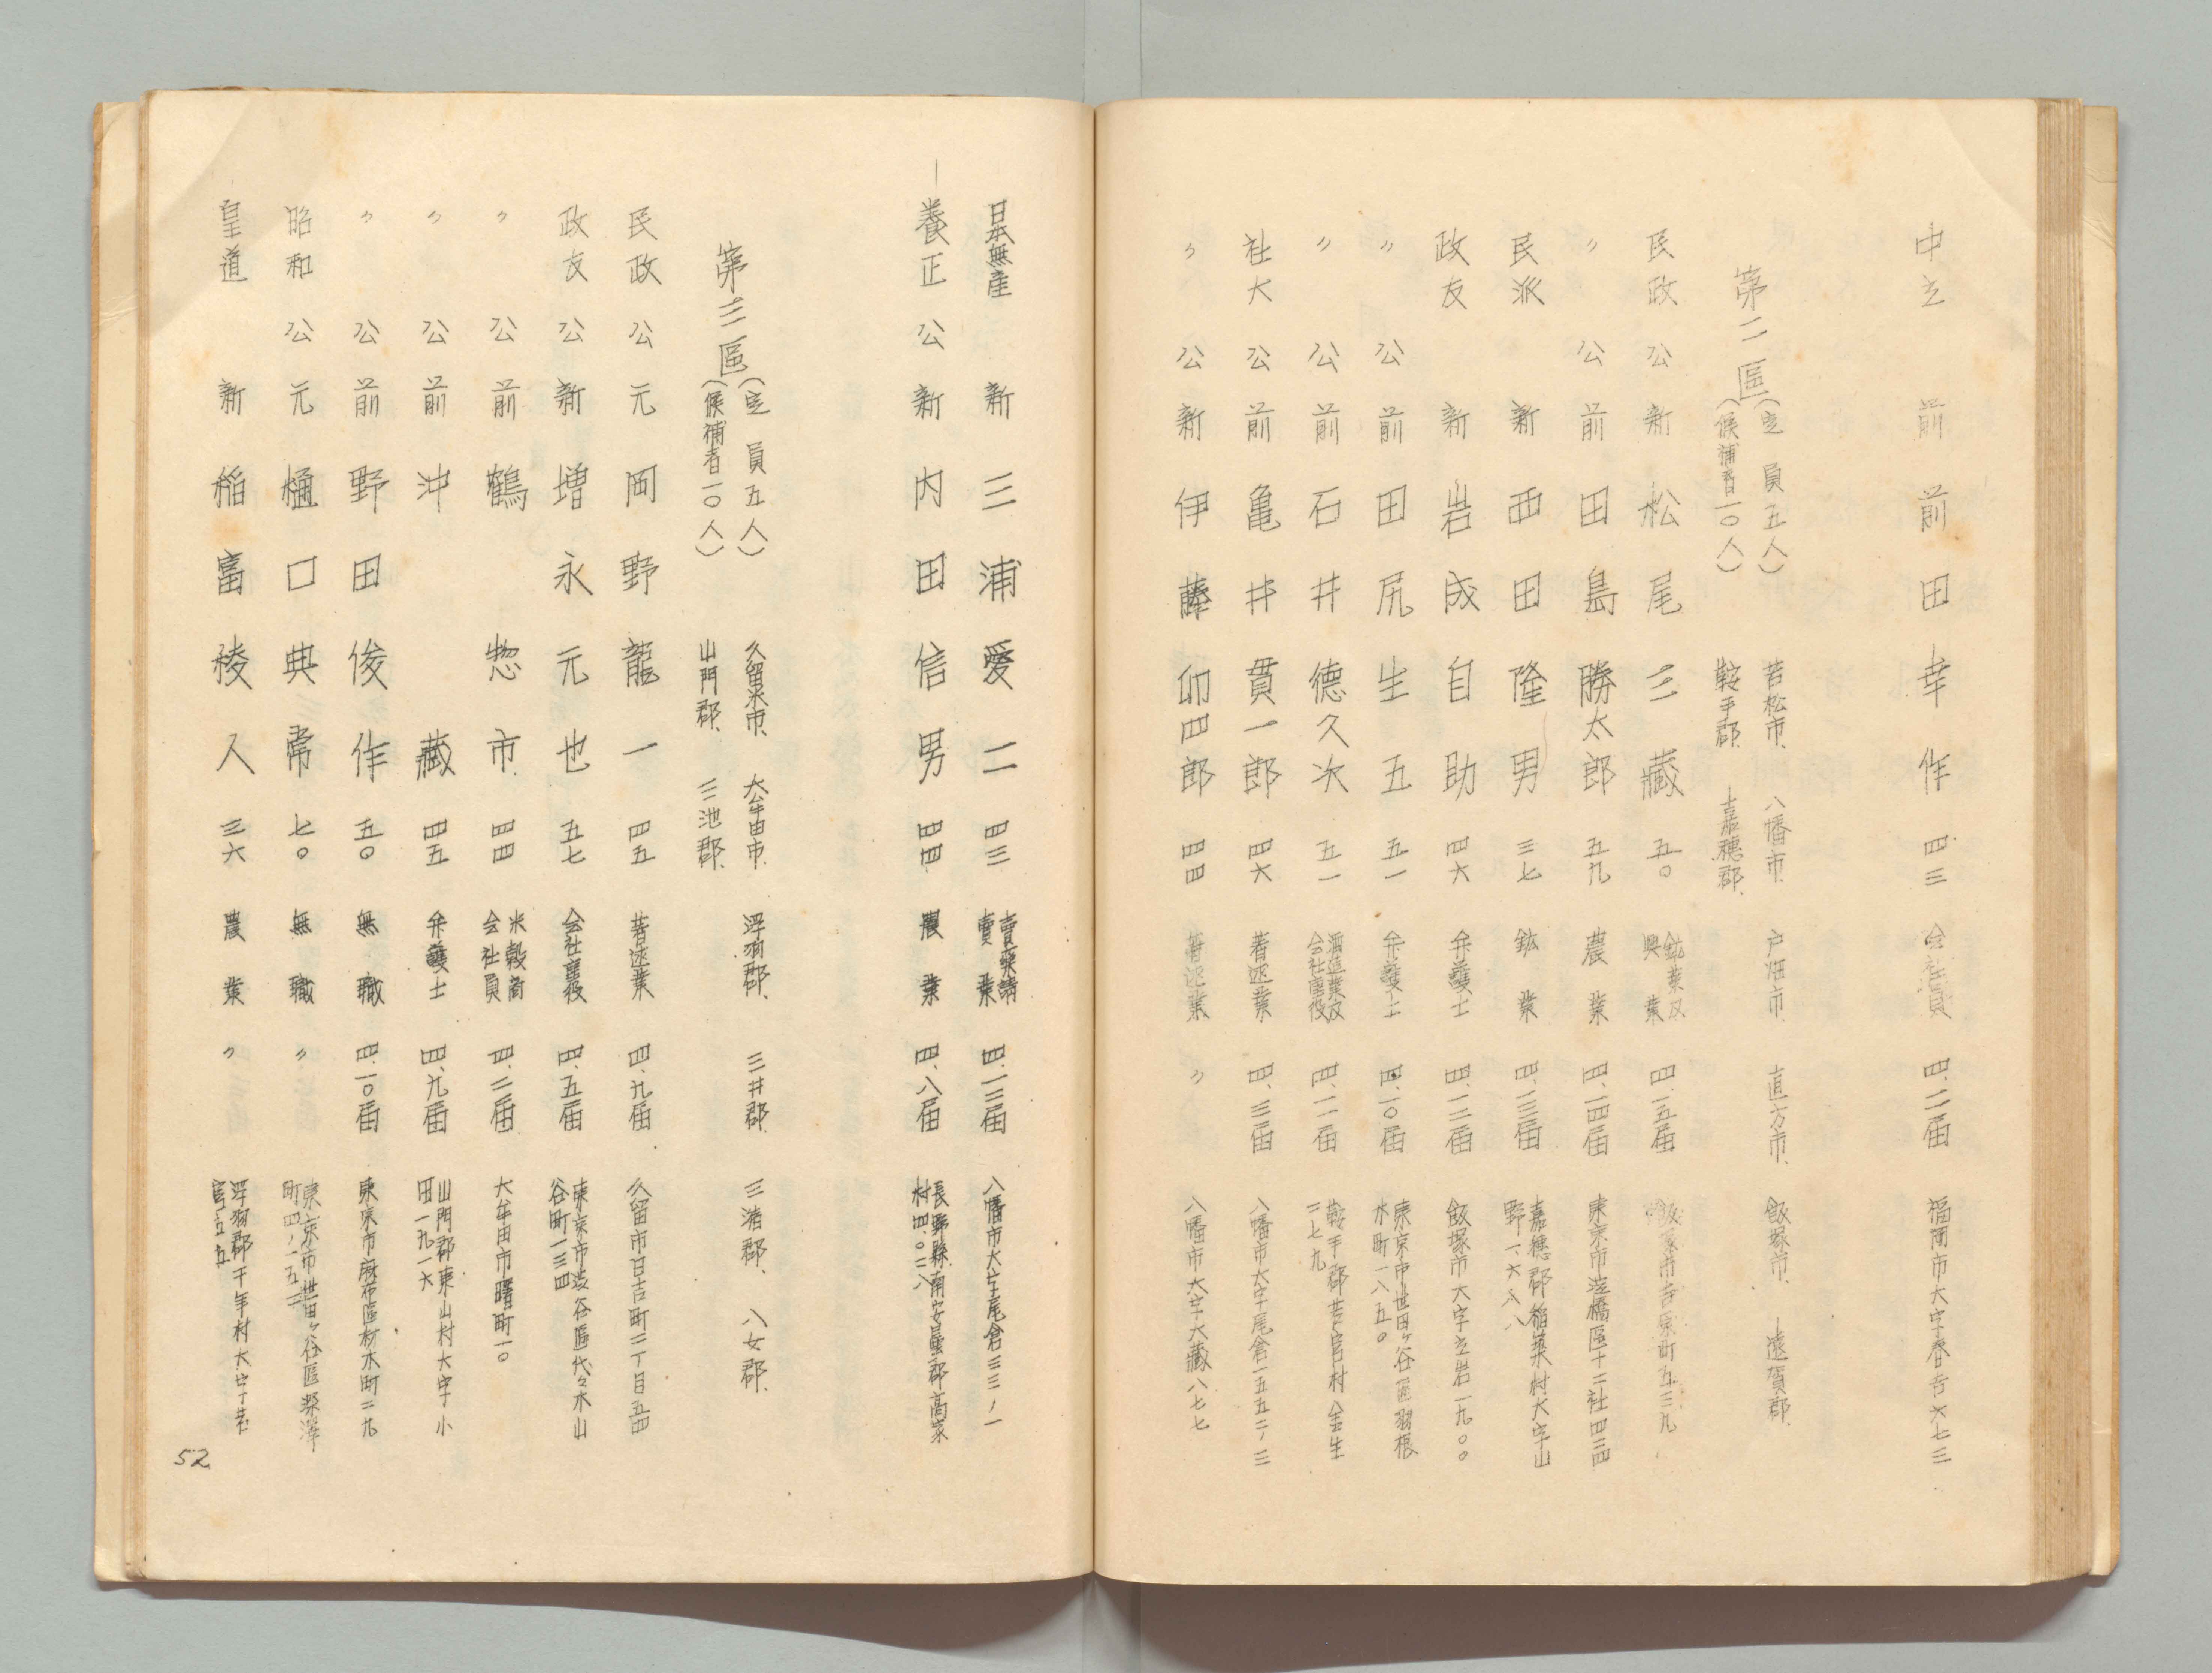 中立 前 前田幸作 四三 会社員 四、一二届 福岡市大字春吉六七三
第二區(定員五人)(候補者一〇人) 若松市、八幡市、戸畑市、直方市、飯塚市、遠賀郡、鞍手郡、嘉穂郡、
民政 公 新 松尾三藏 五〇 鉱業及農業 四、一五届 飯塚市吉原町五三九
〃 公 前 田島勝太郎 五九 農業 四、一四届 東京市淀橋區十二社四三四
民派 新 西田隆男 三七 鉱業 四、一三届 嘉穂郡稲築村大字山野一、六八八
政友 新 岩成自助 四六 弁護士 四、一二届 飯塚市大字立岩一九〇〇
〃 公 前 田尻生五 五一 弁護士 四、一〇届 東京市世田ヶ谷區羽根木町一八五〇
〃 公 前 石井德久次 五一 酒造業及会社重役 四、一一届 鞍手郡若宮村金生二七九
社大 公 前 亀井貫一郎 四六 著述業 四、三届 八幡市大字尾倉一五五二ノ三
〃 公 新 伊藤卯四郎 四四 著述業 〃 八幡市大字大藏八七七
日本無産 新 三浦愛二 四三 賣薬請賣業 四、一三届 八幡市大字尾倉三三ノ一
養正 公 新 内田信男 四四 農業 四、八届 長野縣南安曇郡高家村四、〇二八
第三區(定員五人)(候補者一〇人) 久留米市、大牟田市、浮羽郡、三井郡、三潴郡、八女郡、山門郡、三池郡、
民政 公 元 岡野龍一 四五 著述業 四、九届 久留市日吉町二丁目五四
政友 公 新 増永元也 五七 会社重役 四、五届 東京市渋谷區代々木山谷町一三四
〃 公 前 鶴惣市 四四 米穀商会社員 四、二届 大牟田市曙町一〇
〃 公 前 沖藏 四五 弁護士 四、九届 山門郡東山村大字小田一九一六
〃 公 前 野田俊作 五〇 無職 四、一〇届 東京市麻布區材木町二九
昭和 公 元 樋口典常 七〇 無職 〃 東京市世田ヶ谷區深澤町四ノ一五二
皇道 新 稲富稜人 三六 農業 〃 浮羽郡千年村大字若宮五五
52